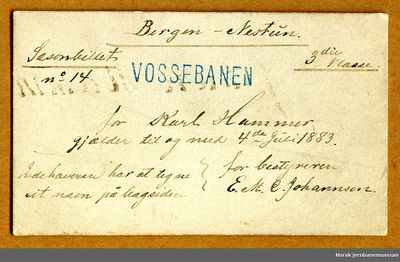 Bergen – Nestun.
Sæsonbillet
no 14
3die Klasse.
VOSSEBANEN
for Karl Hammer
gjælder til og med 4de Juli 1883.
Indehaveren har at tegne
sit navn på bagsiden
for bestyreren
E. M. C. Johannsen.
Norsk jernbanemuseum